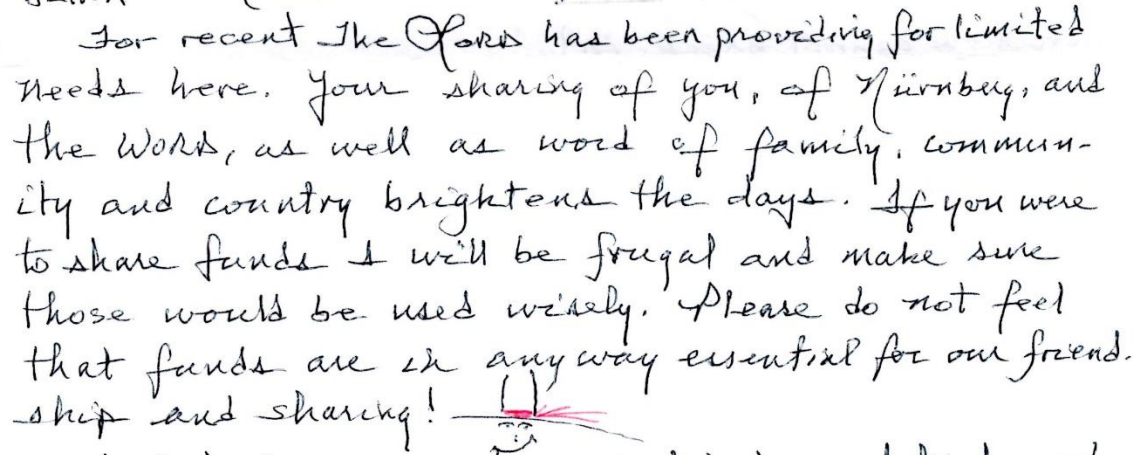 For recent The LORD has been providing for limited
needs here. Your sharing of you, of Nürnberg, and
the WORD, as well as word of family, commun-
ity and country brightens the days. If you were
to share funds I will be frugal and make sure
those would be used wisely. Please do not feel
that funds are in anyway essential for our friend-
ship and sharing!